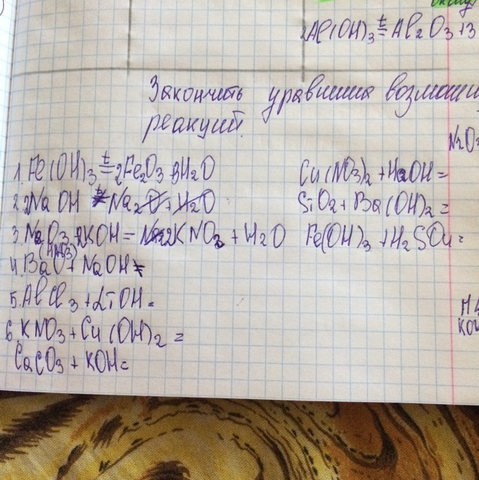 2Al(OH)₃ t= Al₂O₃ + 3
Закончить уравнения возможн
реакций.
N₂O₅
1. Fe(OH)₃ t= 2Fe₂O₃ 3H₂O
2. 2NaOH ≠ Na₂O + H₂O
3. N₂O₅ 2KOH = 2KNO₃ + H₂O
4. Ba(NO₃) + NaOH ≠
5. AlCl₃ + LiOH =
6. KNO₃ + Cu(OH)₂ =
CaCO₃ + KOH =
Cu(NO₃)₂ + NaOH =
SiO₂ + Ba(OH)₂ =
Fe(OH)₃ + H₂SO₄ =